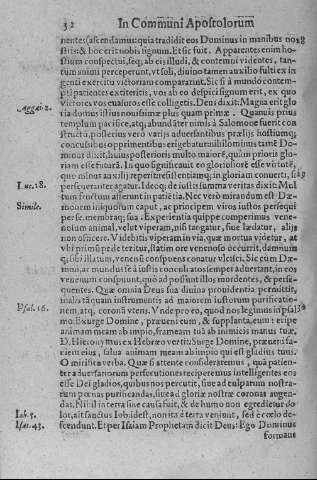 32 In Commũni Apostolorum
nentes (ascendamus: quia tradidit eos Dominus in manibus no
stris: & hoc erit nobis signum. Et sic fuit. Apparentes enim ho-
stium conspectui, seq; ab eis illudi, & contemni videntes, tan-
tum animi perceperunt, vt soli, diuino tamen auxilio fulti ex in
genti exercitu victoriam comparauerint. Sic si à mundo contem-
pti patientes extiteritis, vos ab eo despici signum erit, ex quo
victores vos euasuros esse colligetis. Deus dixit: Magna erit glo
Aggæi. 2. ria domus istius nouissimæ plus quam primæ. Quamuis prius
templum pacifice, atq; abundãter nimis à Salomone fuerit con
structũ, posterius verò varijs aduersantibus prælijs hostiumq;
concursibus opprimentibus erigebatur: nihilominus tamẽ Do-
minus dixit, huius posterioris multo maiorẽ, quàm prioris glo-
riam esse futurã. In quo significauit eo gloriosiore esse virtutẽ,
quo minus auxilij reperit resistentiamq; in gloriam conuerti, si
Luc. 18. perseueranter agatur. Ideoq; de iustis summa veritas dixit: Mul
tum fructum afferunt in patiẽtia. Nec verò mirandum est Dæ-
Simile. monem iniquorum caput, ac principem viros iustos persequi
per se, membraq; sua. Experientia quippe comperimus vene-
nosum animal, velut viperam, nisi tangatur, siue lædatur, alijs
non officere. Videbitis viperam in via, quæ mortua videtur, at
vbi primũ pede teritur, statim ore venenoso occurrit, damnum
q; sibi illatum, venenũ conspuens conatur vlcisci. Sic cùm Dæ-
mon, ac mundus se à iustis conculcatos semper aduertant, in eos
venenum conspuunt, quò ad possunt illos mordentes, & perse-
quentes. Quæ omnia Deus sua diuina prouidentia permittit,
malis tãquam instrumentis ad maiorem iustorum purificatio-
Psal. 16. nem, atq; coronã vtens. Vnde pro eo, quod nos legimus in psal
mo: Exurge Domine, præueni eum, & supplanta, eum: eripe
animam meam ab impio, frameam tuã ab inimicis manus tuæ,
D. Hieronymus ex Hebræo vertit: Surge Domine, præueni fa-
ciem eius, salua animam meam ab impio qui est gladius tuus.
O mirifica verba. Quæ si attente consideraremus, quã patien-
ter aduersariorum persecutiones reciperemus intelligentes eos
esse Dei gladios, quibus nos percutit, siue ad culparum nostra-
rum pœnas purificandas, siue ad gloriæ nostræ coronas augen-
das. Nihil in terra sine causa fuit, & de humo non egredietur do
Iob. 5. lor, ait sanctus Iob: id est, non ita è terra veniunt, sed è cœlo de-
Isai. 43. scendunt. Et per Isaiam Prophetam dicit Deus: Ego Dominus
formans